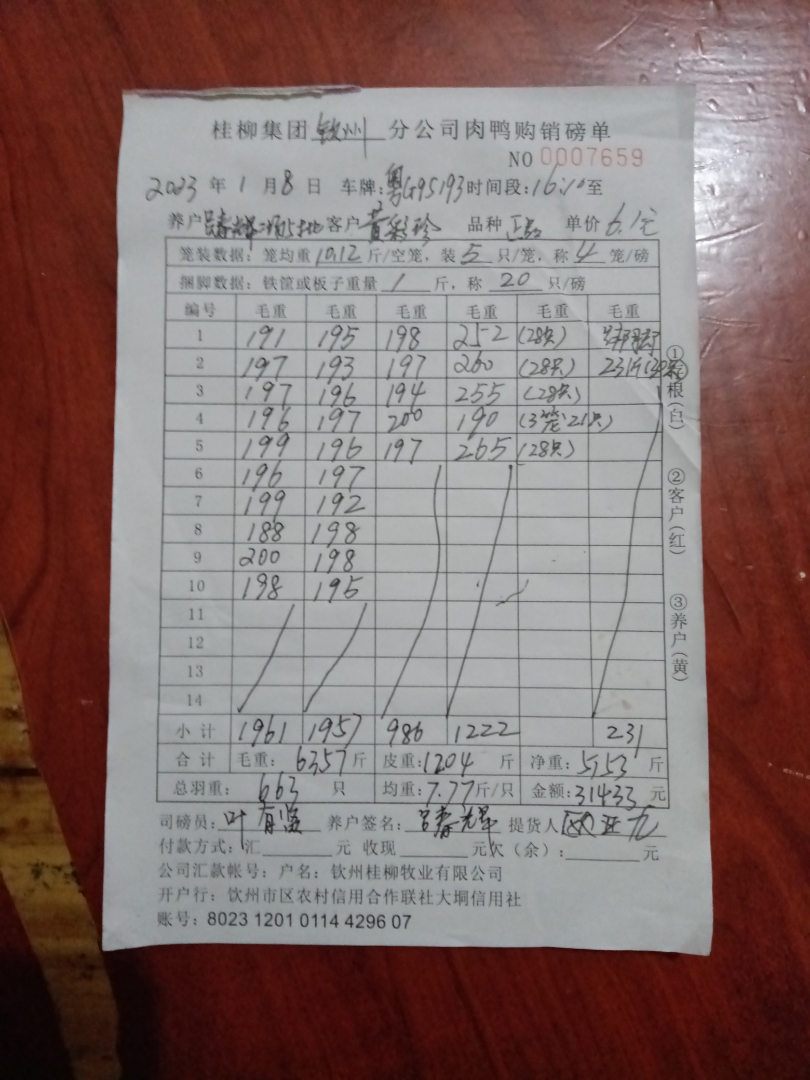 桂柳集团 钦州 分公司肉鸭购销磅单
NO 0007659
2023 年 1 月 8 日 车牌:粤G95193 时间段:16:10 至
养户 客户 黄彩珍 品种 正品 单价 6.1元
笼装数据: 笼均重 10.12 斤/空笼, 装 5 只/笼, 称 4 笼/磅
捆脚数据: 铁筐或板子重量 1 斤, 称 20 只/磅
编号 毛重 毛重 毛重 毛重 毛重 毛重
1 191 195 198 252 (28只)
2 197 193 197 260 (28只) 231斤
3 197 196 194 255 (28只)
4 196 197 200 190 (3笼21只)
5 199 196 197 265 (28只)
6 196 197
7 199 192
8 188 198
9 200 198
10 198 195
11
12
13
14
小计 1961 1957 986 1222 231
合计 毛重: 6357 斤 皮重: 1204 斤 净重: 5153 斤
总羽重: 663 只 均重: 7.77 斤/只 金额: 31433 元
司磅员: 叶有 养户签名: 吕春光 提货人
付款方式: 汇 元 收现 元 欠(余): 元
公司汇款帐号: 户名: 钦州桂柳牧业有限公司
开户行: 钦州市区农村信用合作联社大垌信用社
账号: 8023 1201 0114 4296 07
①存根(白)
②客户(红)
③养户(黄)